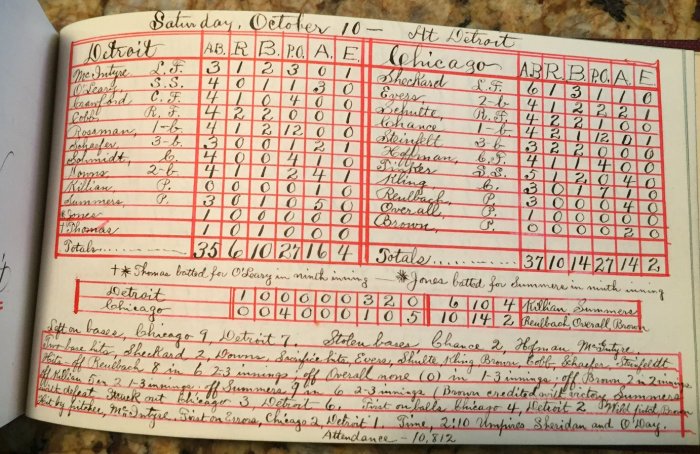 Saturday, October 10— At Detroit
Detroit A.B. R B. P.O. A. E.
McIntyre L.F. 3 1 2 3 0 1
O'Leary, S.S. 4 0 1 1 3 0
Crawford C.F. 4 1 0 4 0 0
Cobb, R.F. 4 2 2 0 0 1
Rossman, 1-b. 4 1 2 12 0 0
Schaefer 3-b. 3 0 0 1 2 1
Schmidt, C. 4 0 0 4 1 0
Downs 2-b 4 0 1 2 4 1
Killian, P. 0 0 0 0 1 0
Summers, P. 3 0 1 0 5 0
*Jones 1 0 0 0 0 0
†Thomas 1 0 1 0 0 0
Totals 35 6 10 27 16 4
Chicago A.B R. B. P.O. A. E
Sheckard L.F. 6 1 3 1 1 0
Evers, 2-b 4 1 2 2 2 1
Schulte, R.F. 4 2 2 1 0 0
Chance 1-b 4 2 1 12 0 1
Steinfelt 3-b 3 2 2 0 0 0
Hofman, C.F. 4 1 1 4 0 0
Tinker S.S. 5 1 2 0 4 0
Kling C. 3 0 1 7 1 0
Reulbach, P. 3 0 0 0 4 0
Overall, P. 1 0 0 0 0 0
Brown, P. 0 0 0 0 2 0
Totals 37 10 14 27 14 2
†* Thomas batted for O'Leary in ninth inning — * Jones batted for Summers in ninth inning
Detroit 1 0 0 0 0 0 3 2 0 6 10 4 Killian Summers
Chicago 0 0 4 0 0 0 1 0 5 10 14 2 Reulbach, Overall, Brown
Left on bases, Chicago 9, Detroit 7. Stolen bases Chance 2 Hofman McIntyre.
Two-base hits, Sheckard 2, Downs. Sacrifice hits, Evers, Shulte Kling Brown Cobb, Schaefer. Steinfeldt
Hits - off Reulbach 8 in 6 2-3 innings: off Overall none (0) in 1-3 innings: off Brown 2 in 2 innings
off Killian 5 in 2 1-3 innings: off Summers 9 in 6 2-3 innings (Brown credited with victory, Summers
with defeat. Struck out Chicago 3, Detroit - 6. First on balls, Chicago 4, Detroit 2 Wild pitch, Brown
Hit by pitcher, McIntyre. First on Errors, Chicago 2 Detroit 1. Time, 2:10 Umpires Sheridan and O'Day.
Attendance - 10,812